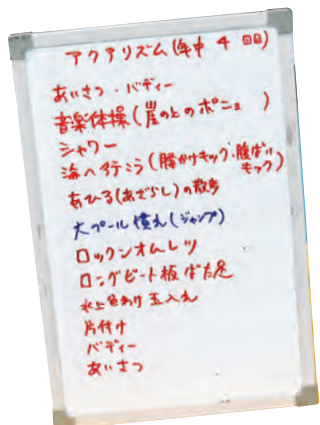 アクアリズム(年中 4 回)
あいさつ・バディー
音楽体操(崖の上のポニョ )
シャワー
海へ行こう(腰かけキック・腹ばい
キック)
あひる(あざらし)の散歩
大プール慣れ(ジャンプ)
ロックンオムレツ
ロングビート板ばた足
水上色わけ玉入れ
片付け
バディー
あいさつ